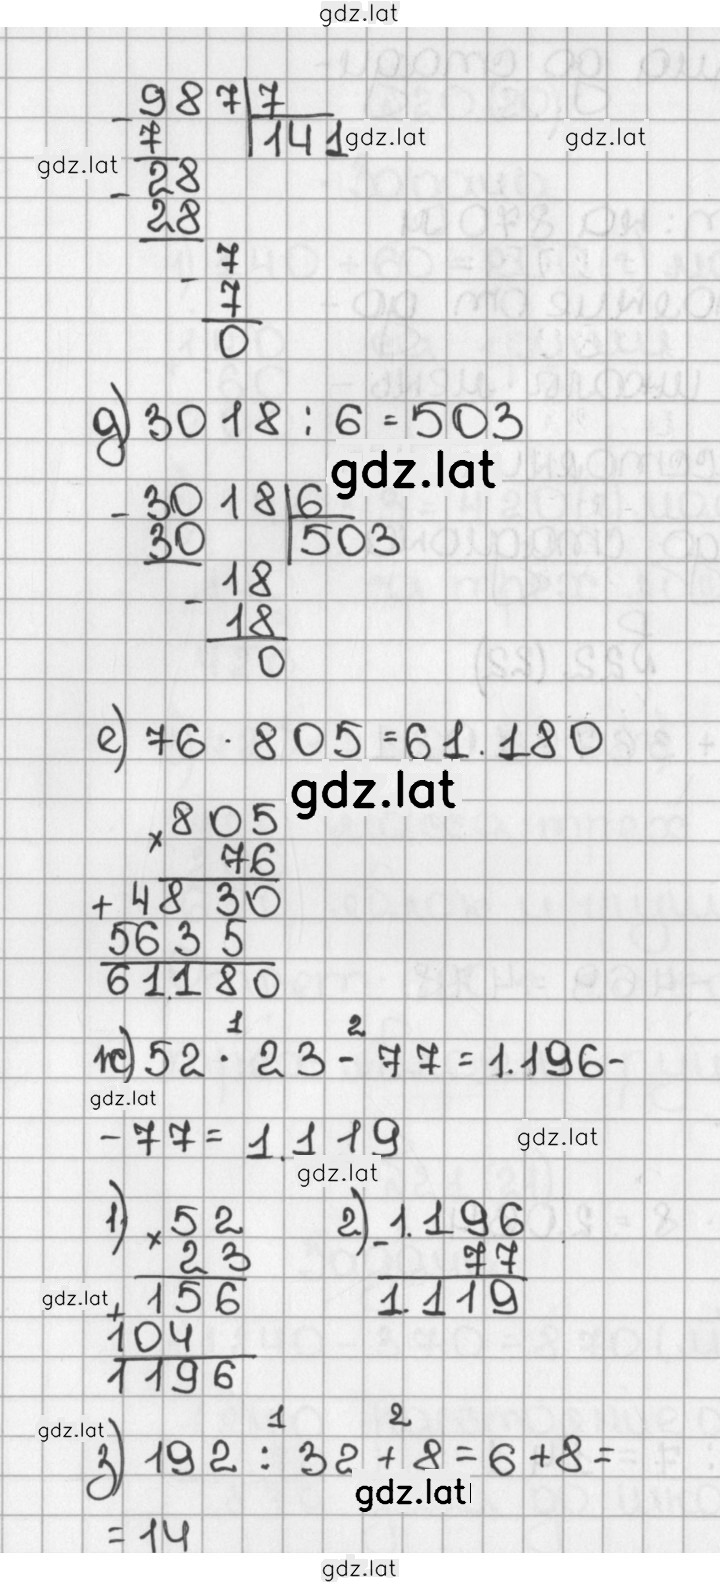 gdz.lat
- 987 | 7
7 | 141 gdz.lat gdz.lat
gdz.lat
- 28
28
- 7
7
0
д) 3018 : 6 = 503
gdz.lat
- 3018 | 6
30 | 503
- 18
18
0
е) 76 · 805 = 61.180
gdz.lat
× 805
76
+ 48 30
563 5
61.180
1 2
ж) 52 · 23 - 77 = 1.196 -
gdz.lat
- 77 = 1.119 gdz.lat
gdz.lat
1) × 52 2) - 1.196
23 77
gdz.lat + 156 1.119
104
1196
gdz.lat 1 2
з) 192 : 32 + 8 = 6 + 8 =
gdz.lat
= 14
gdz.lat